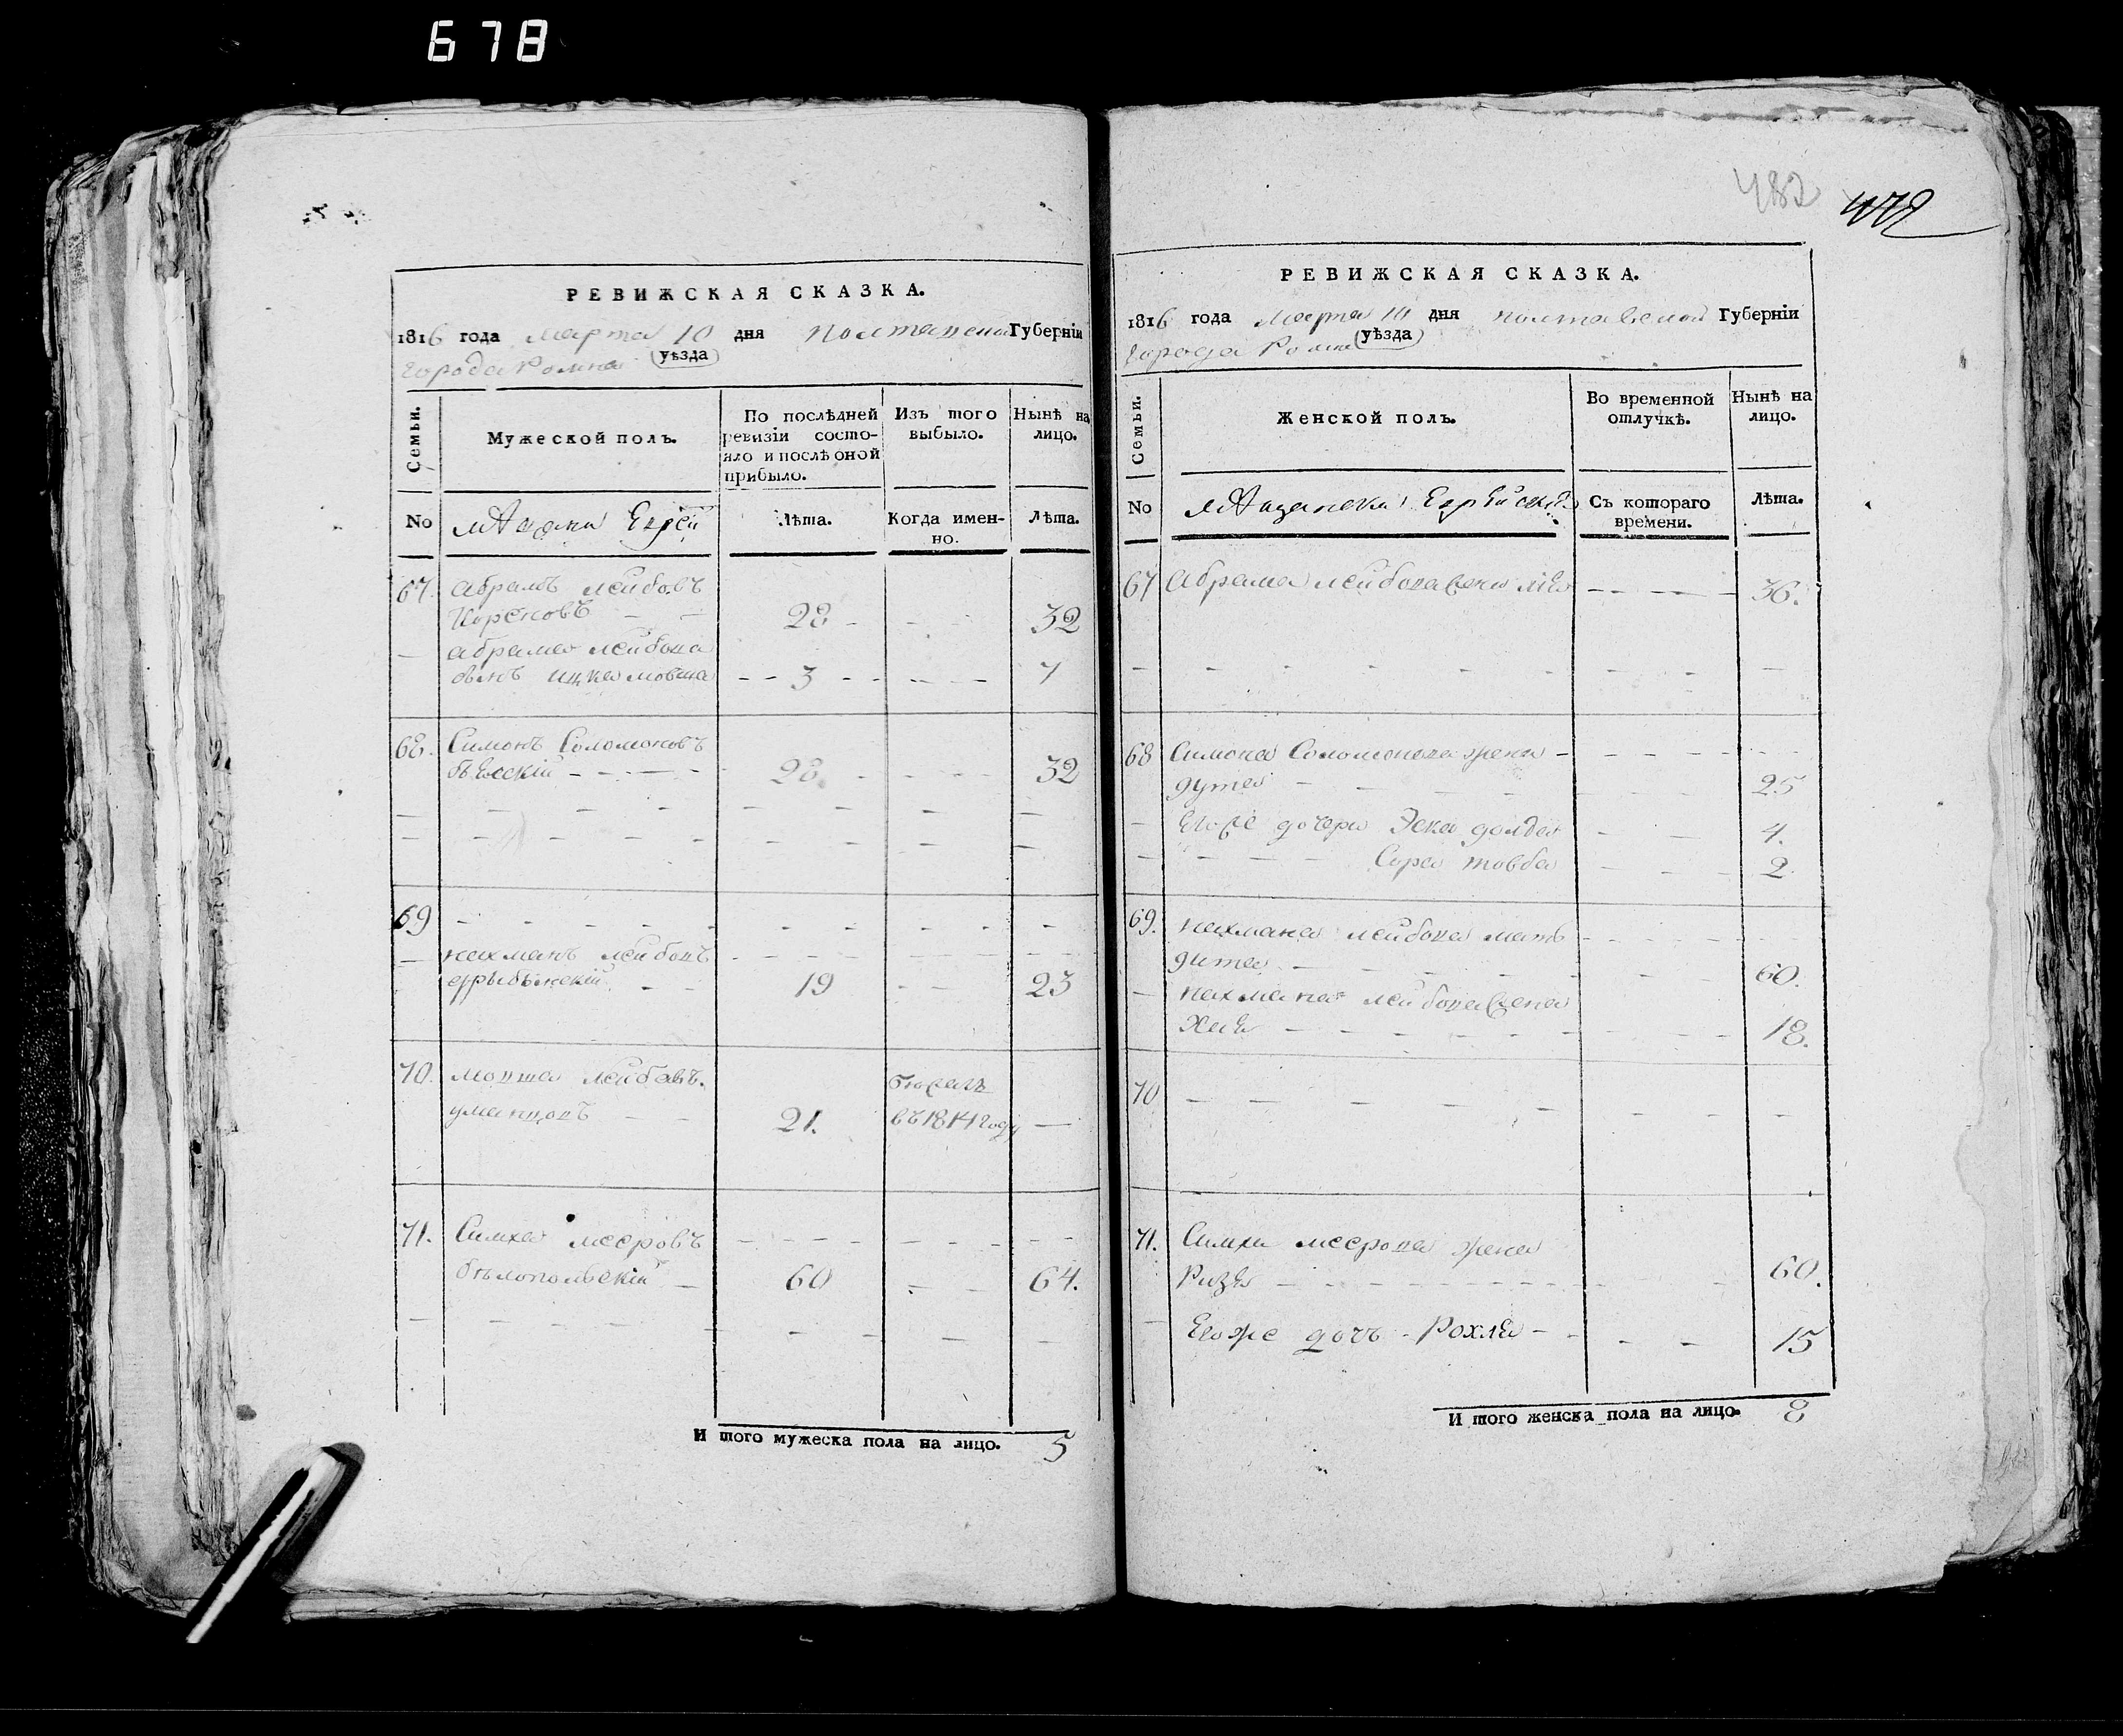 678
482
РЕВИЖСКАЯ СКАЗКА.
1816 года марта 10 дня Полтавской Губерніи
города Ромна (уѣзда)
Семьи.
Мужеской полъ.
По послѣдней ревизіи состо-
яло и послѣ оной
прибыло.
Изъ того
выбыло.
Нынѣ на
лицо.
No
мѣщани Еврей
Лѣта.
Когда имен-
но.
Лѣта.
67. абрамъ лейбовъ
- - 28 - - - 32
абрама лейбова
сынъ - - 3 - - - - - 7
68. Симонъ Соломоновъ
- - - - 28 - - - 32
69 - - - - -
нахманъ лейбовъ - - - - -
- - 19 - - 23
70. мовша лейбовъ.
уманцовъ - - 21. въ 1814 году -
71. Симха мееровъ - - - - - -
бѣлопольскій - 60 - - 64.
И того мужеска пола на лицо. 5
РЕВИЖСКАЯ СКАЗКА.
1816 года марта 10 дня полтавской Губерніи
города Ромна (уѣзда)
Семьи.
Женской полъ.
Во временной
отлучкѣ.
Нынѣ на
лицо.
No
Съ котораго
времени.
Лѣта.
67 Абрама лейбова жена - - - - 36.
68 Симона Соломонова жена - - - - -
- - - - 25
Егоже дочери Эска - - 4.
- - - - Сора товба - - - 2.
69. нахмана лейбова мать - - - - -
- - - - 60.
нахмана лейбова жена
Хая - - - - - 18.
70 - - - - - - -
71. Симхи меерова жена
- - - - - - 60.
Егоже дочь - Рохля - - - - 15
И того женска пола на лицо. 8